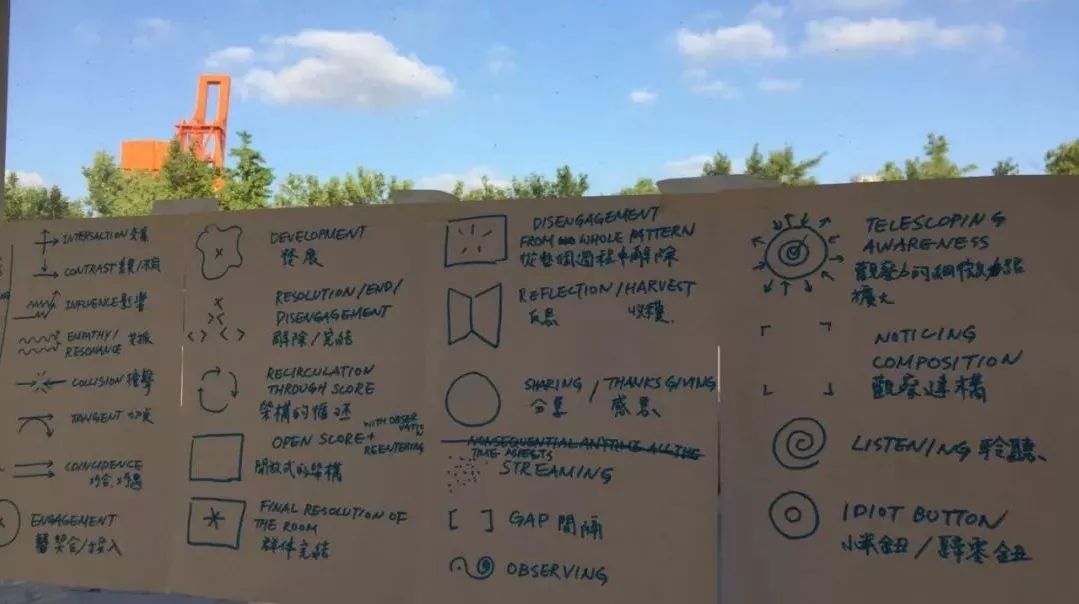 INTERSACTION 交集
CONTRAST
INFLUENCE 影響
EMPATHY/
RESONANCE
COLLISION 撞擊
TANGENT 切線
COINCIDENCE
巧合
ENGAGEMENT
契合/投入
DEVELOPMENT
發展
RESOLUTION/END/
DISENGAGEMENT
解除/完結
RECIRCULATION
THROUGH SCORE
架構的循環
OPEN SCORE + WITH OBSERVATION
REENTERING
開放式的架構
FINAL RESOLUTION OF
THE ROOM
群体完結
DISENGAGEMENT
FROM WHOLE PATTERN
從整個過程中解除
REFLECTION/HARVEST
反思 收穫
SHARING / THANKS GIVING
分享 / 感恩
NONSEQUENTIAL ANYTIME ALL THE
TIME ASPECTS
STREAMING
[ ] GAP 間隔
OBSERVING
TELESCOPING
AWARENESS
擴大
NOTICING
COMPOSITION
觀察建構
LISTENING 聆聽
IDIOT BUTTON
小呆鈕/歸零鈕